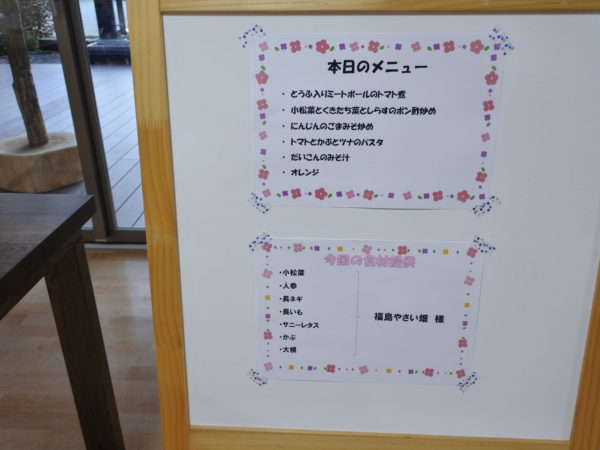 本日のメニュー
・ とうふ入りミートボールのトマト煮
・ 小松菜とくきたち菜としらすのポン酢炒め
・ にんじんのごまみそ炒め
・ トマトとかぶとツナのパスタ
・ だいこんのみそ汁
・ オレンジ
今回の食材提供
・小松菜
・人参
・長ネギ
・長いも
・サニーレタス
・かぶ
・大根
福島やさい畑 様